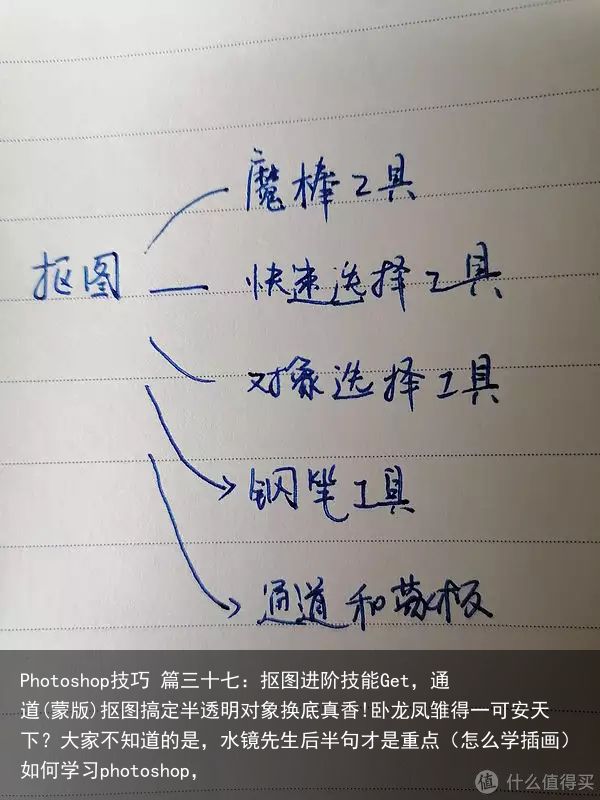 魔棒工具
抠图
快速选择工具
对象选择工具
钢笔工具
通道和蒙板
Photoshop技巧 篇三十七: 抠图进阶技能Get, 通
道(蒙版)抠图搞定半透明对象换底真香!卧龙凤雏得一可安天
下? 大家不知道的是, 水镜先生后半句才是重点 (怎么学插画)
如何学习photoshop,
值 什么值得买